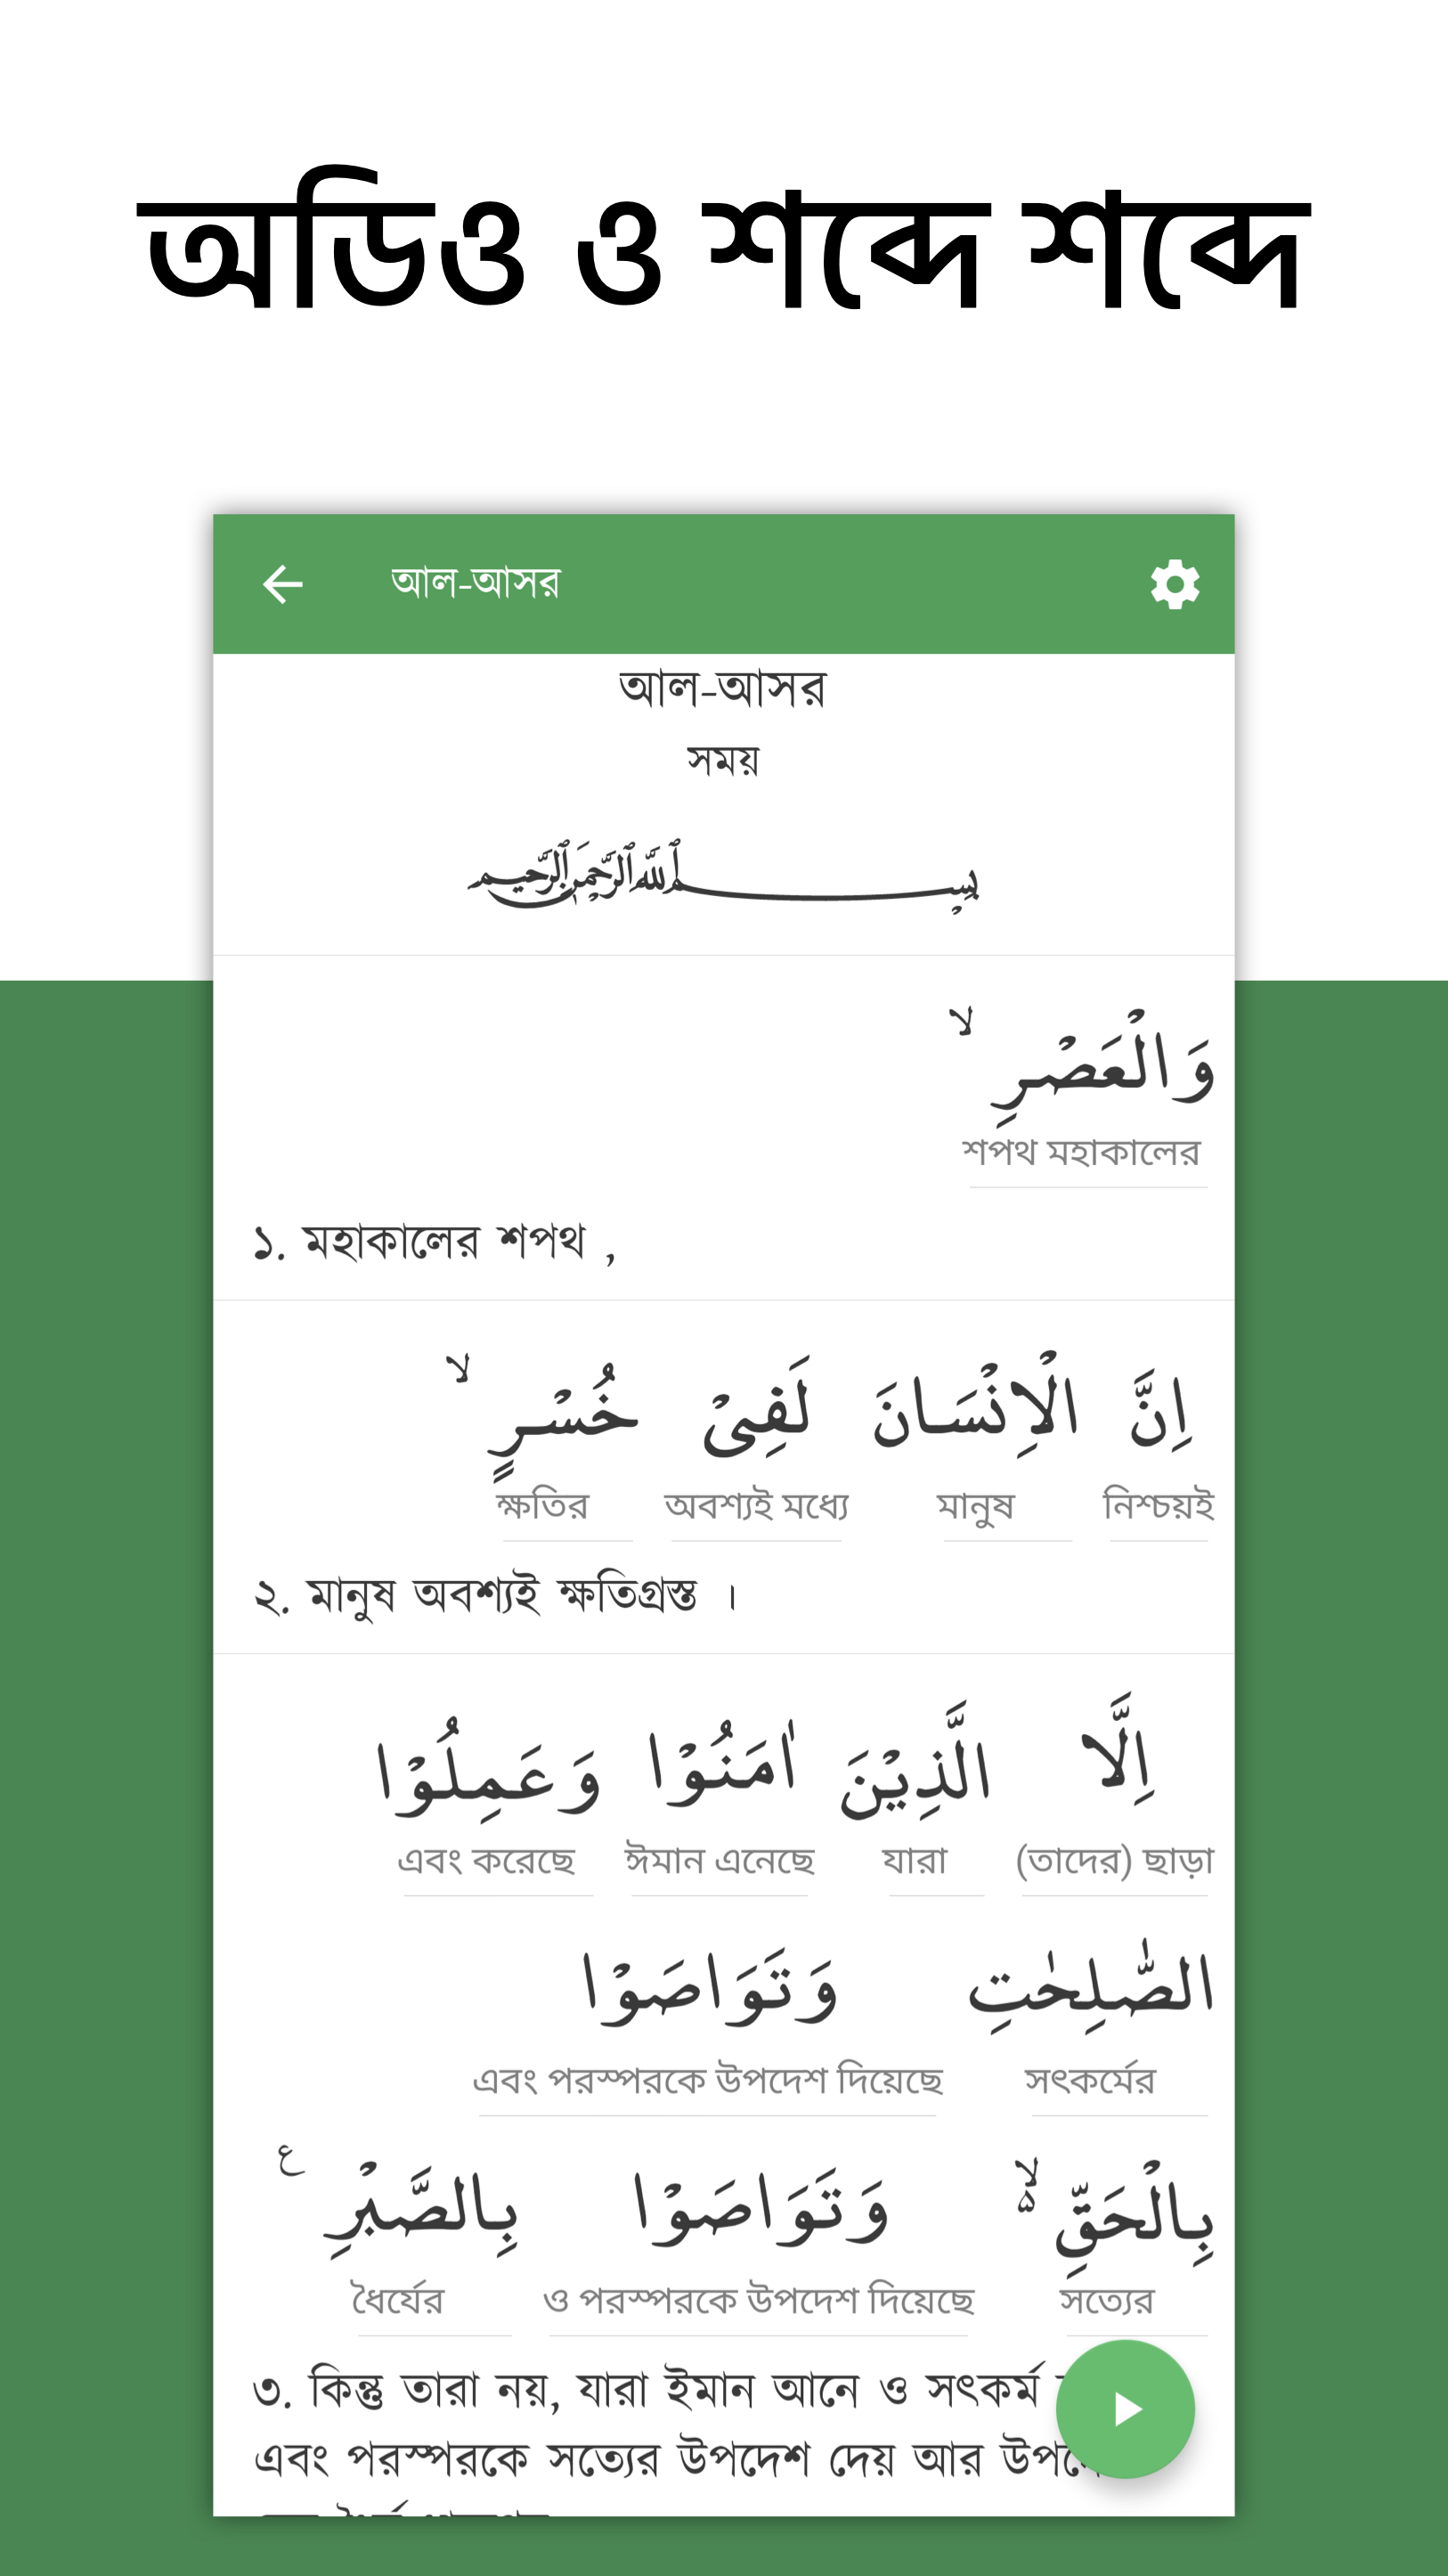 অডিও ও শব্দে শব্দে
আল-আসর
আল-আসর
সময়
بِسْمِ ٱللَّهِ ٱلرَّحْمَٰنِ ٱلرَّحِيمِ
وَالْعَصْرِ ۙ
শপথ মহাকালের
১. মহাকালের শপথ ,
اِنَّ الْاِنْسَانَ لَفِىْ خُسْرٍ ۙ
নিশ্চয়ই মানুষ অবশ্যই মধ্যে ক্ষতির
২. মানুষ অবশ্যই ক্ষতিগ্রস্ত ।
اِلَّا الَّذِيْنَ اٰمَنُوْا وَعَمِلُوْا
(তাদের) ছাড়া যারা ঈমান এনেছে এবং করেছে
الصّٰلِحٰتِ وَتَوَاصَوْا
সৎকর্মের এবং পরস্পরকে উপদেশ দিয়েছে
بِالْحَقِّ ۙ۬ وَتَوَاصَوْا بِالصَّبْرِ ع
সত্যের ও পরস্পরকে উপদেশ দিয়েছে ধৈর্যের
৩. কিন্তু তারা নয়, যারা ইমান আনে ও সৎকর্ম
এবং পরস্পরকে সত্যের উপদেশ দেয় আর